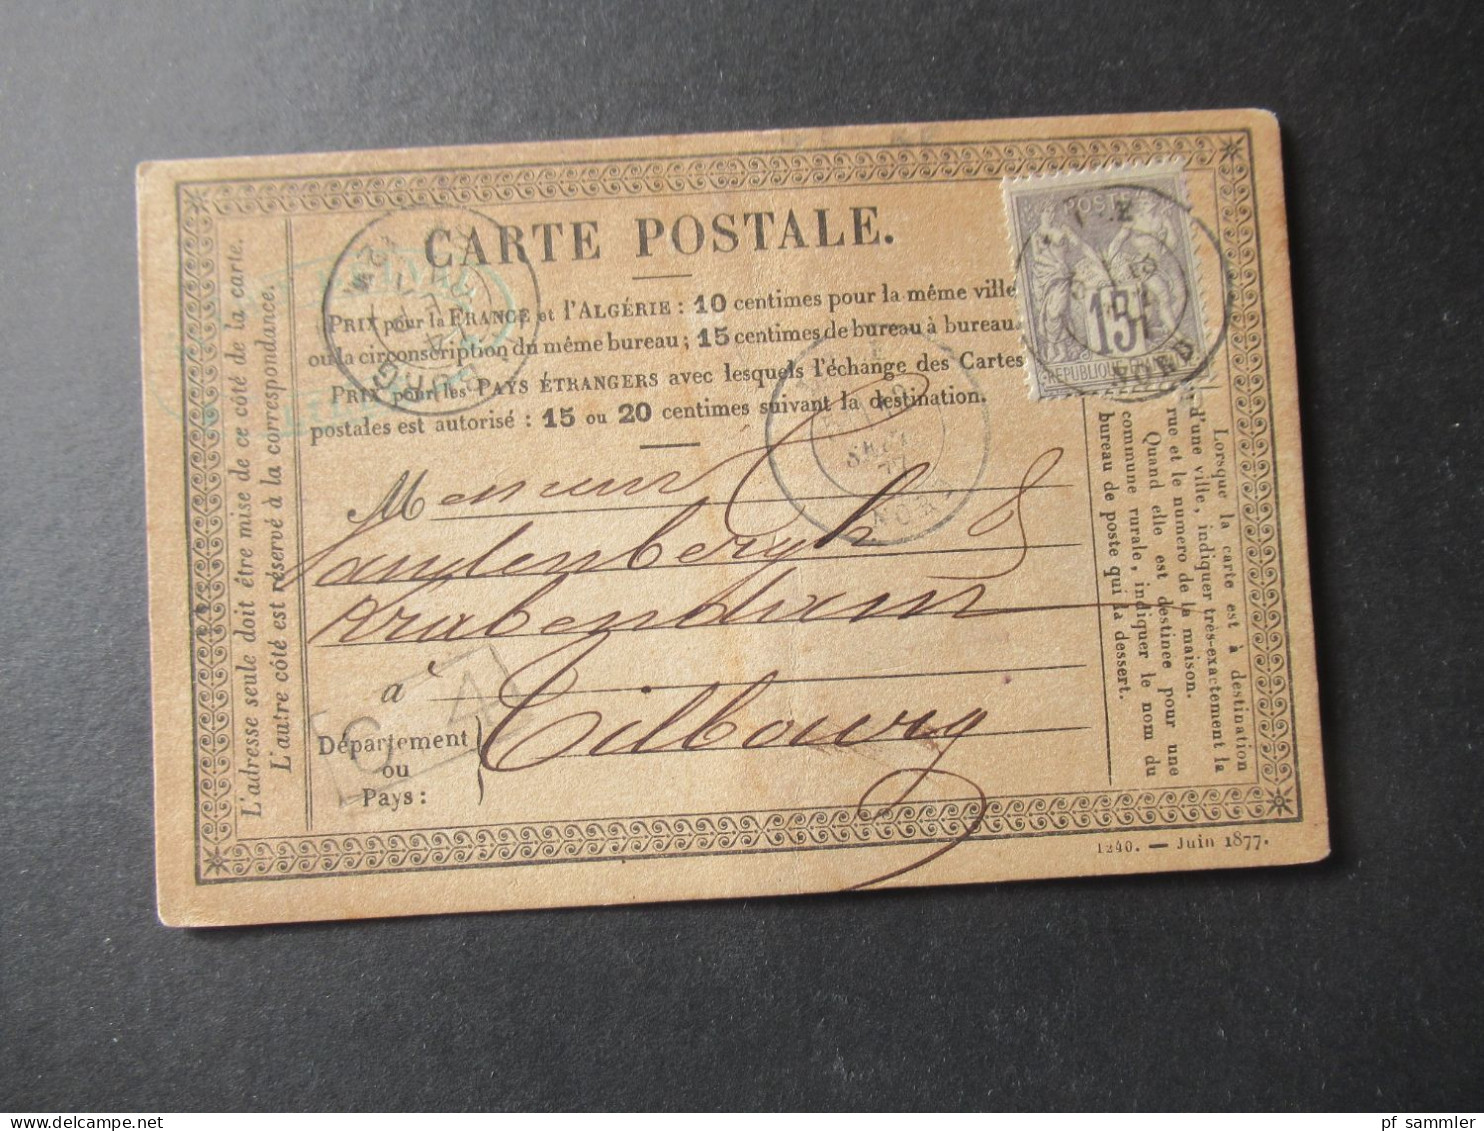 CARTE POSTALE.
PRIX pour la FRANCE et l'ALGÉRIE : 10 centimes pour la même ville
ou la circonscription du même bureau ; 15 centimes de bureau à bureau.
PRIX pour les PAYS ÉTRANGERS avec lesquels l'échange des Cartes
postales est autorisé : 15 ou 20 centimes suivant la destination.
L'adresse seule doit être mise de ce côté de la carte.
L'autre côté est réservé à la correspondance.
POSTE
15
REPUBLIQUE
NORD
SEPT
77
NORD
M
Vandenbergh &
Krabendam
à Tilbourg
Département
ou
Pays :
Lorsque la carte est à destination
d'une ville, indiquer très-exactement la
rue et le numero de la maison.
Quand elle est destinee pour une
commune rurale, indiquer le nom du
bureau de poste qui la dessert.
1240. — Juin 1877.
pf sammler